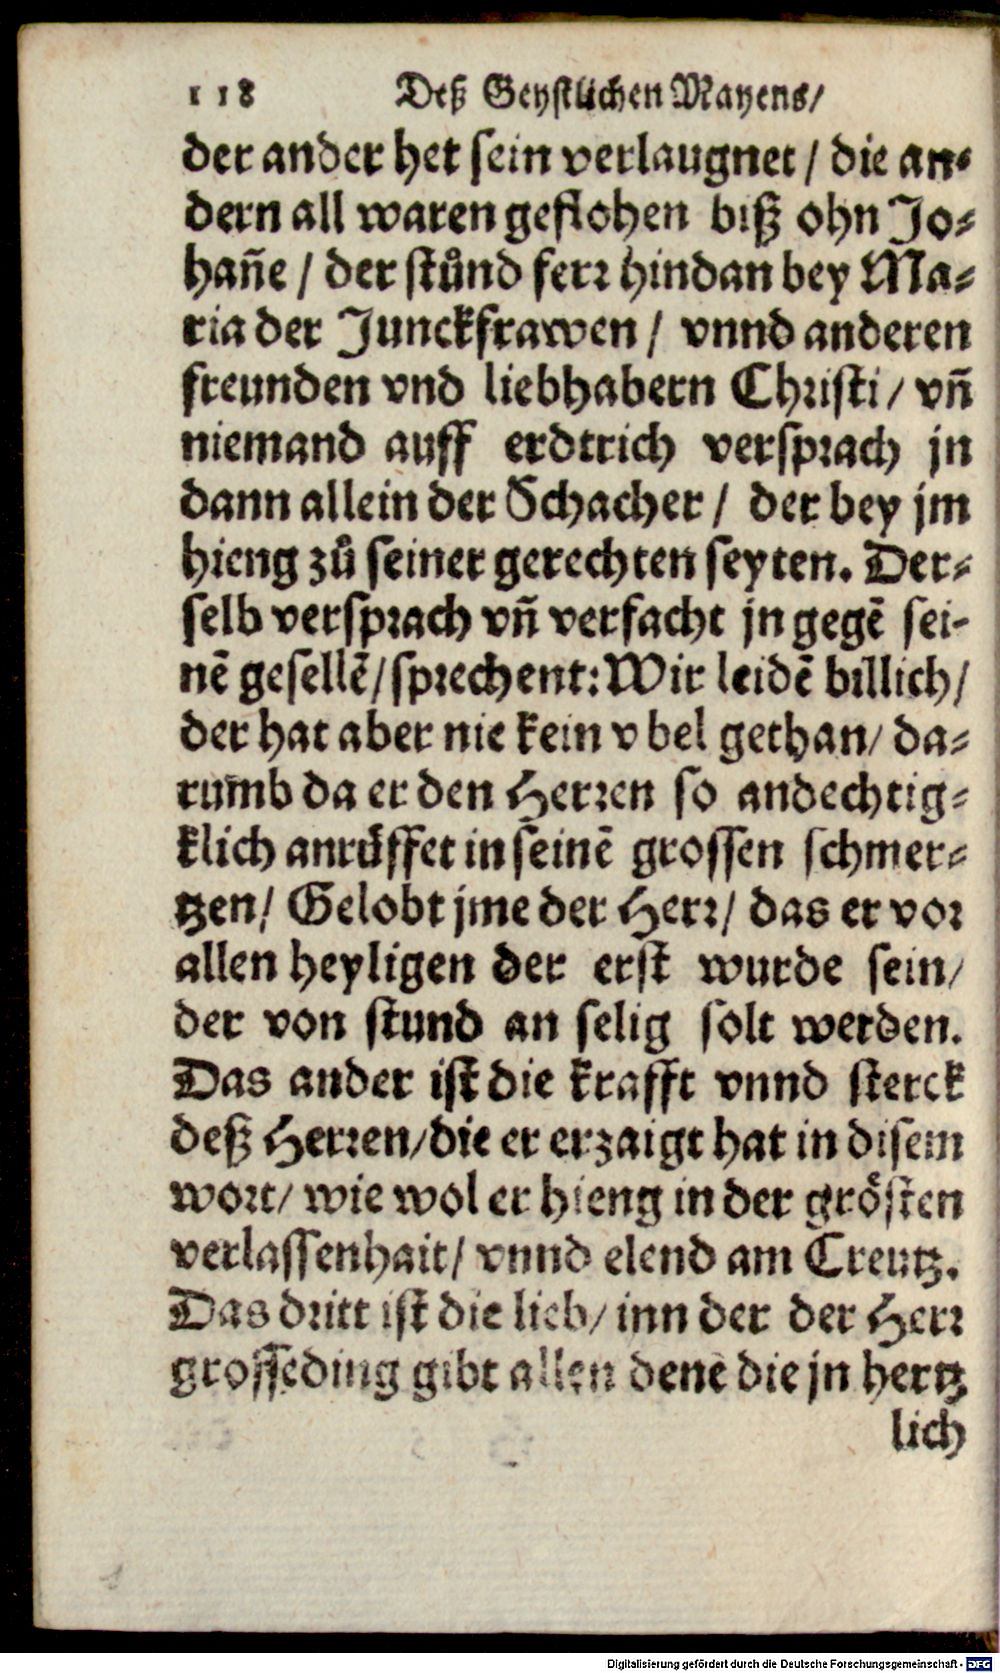 118 Deß Geystlichen Mayens/
der ander het sein verlaugnet / die an⸗
dern all waren geflohen biß ohn Jo⸗
hañe / der stůnd ferr hindan bey Ma⸗
ria der Junckfrawen / vnnd anderen
freunden vnd liebhabern Christi / vñ
niemand auff erdtrich versprach jn
dann allein der Schacher / der bey jm
hieng zů seiner gerechten seyten. Der⸗
selb versprach vñ verfacht jn gegē sei-
nē gesellē/sprechent: Wir leidē billich/
der hat aber nie kein vbel gethan/ da⸗
rumb da er den Herren so andechtig⸗
klich anrůffet in seinē grossen schmer⸗
tzen/ Gelobt jme der Herr/ das er vor
allen heyligen der erst wurde sein/
der von stund an selig solt werden.
Das ander ist die krafft vnnd sterck
deß Herren/die er erzaigt hat in disem
wort/ wie wol er hieng in der grösten
verlassenhait/ vnnd elend am Creutz.
Das dritt ist die lieb/ inn der der Herr
grosseding gibt allen denē die jn hertz
lich
Digitalisierung gefördert durch die Deutsche Forschungsgemeinschaft - DFG